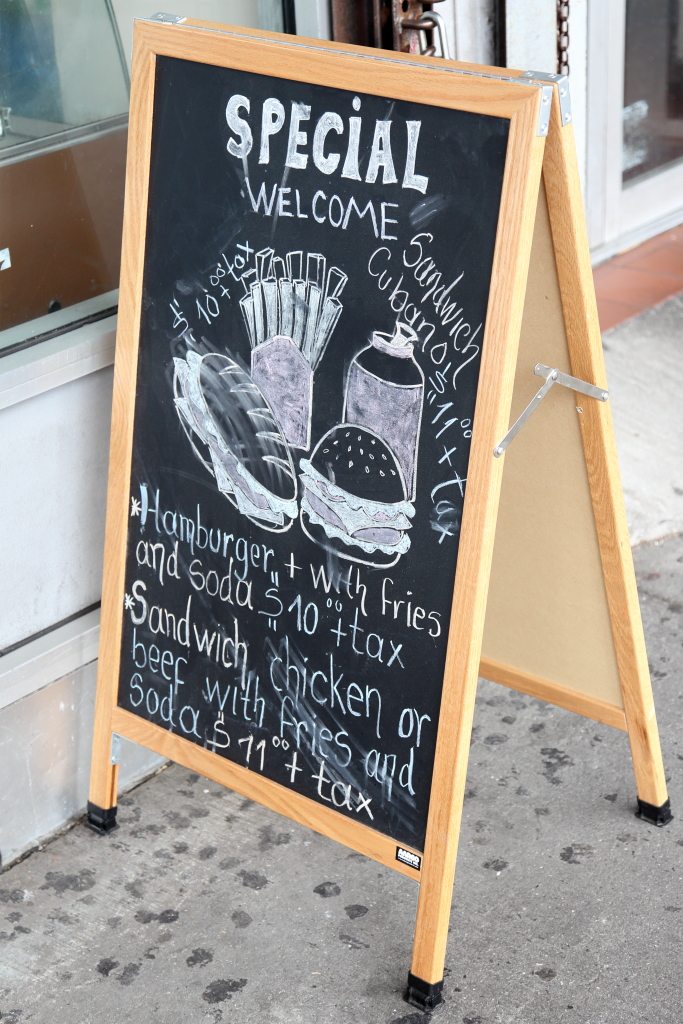 SPECIAL
WELCOME
$ 10°° + tax
Sandwich
Cubano
$ 11°° + tax
*Hamburger + with fries
and soda $ 10°° + tax
*Sandwich, chicken or
beef with fries and
soda $ 11°° + tax